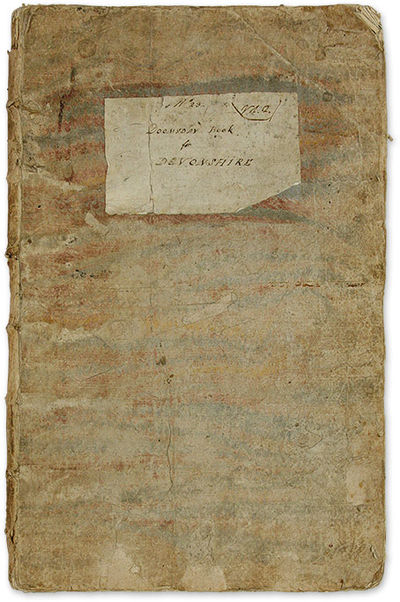 No. 23.
Doomsday Book
for
DEVONSHIRE